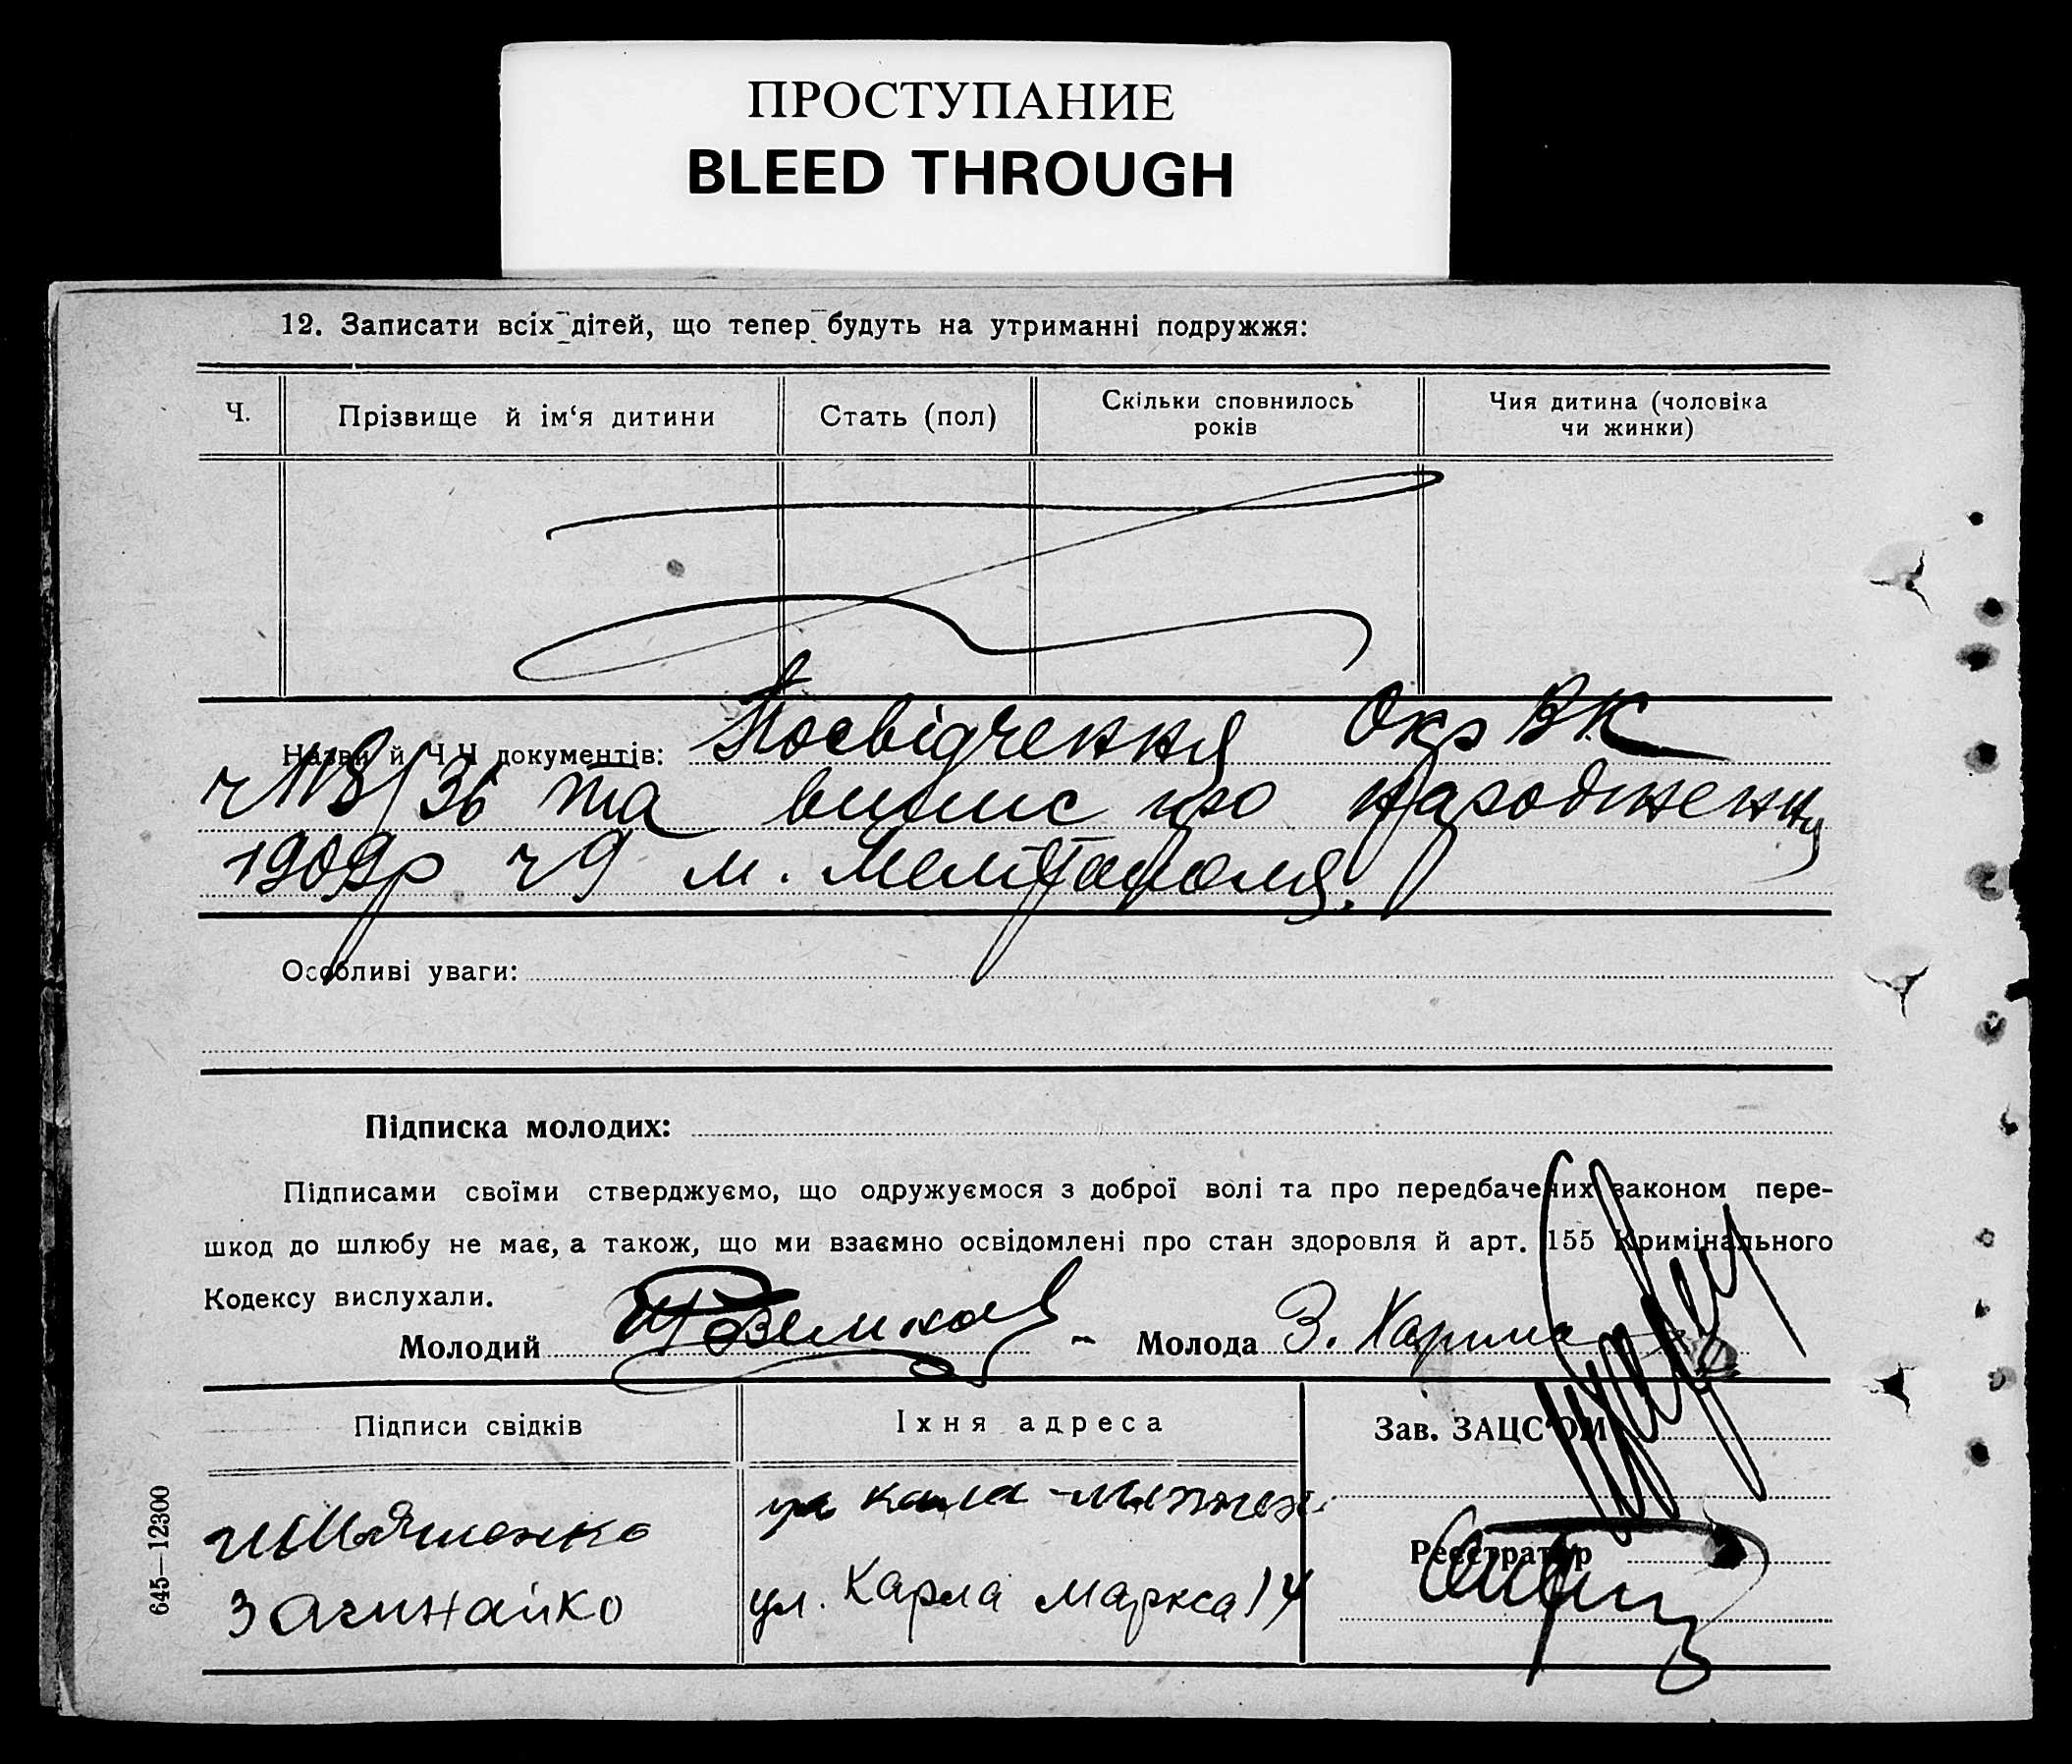 ПРОСТУПАНИЕ
BLEED THROUGH
12. Записати всіх дітей, що тепер будуть на утриманні подружжя:
Ч.
Прізвище й ім‘я дитини
Стать (пол)
Скільки сповнилось
років
Чия дитина (чоловіка
чи жинки)
Назви й Ч.Ч документів: Посвідчення Окр ВК
ч 118/36 та випис про народження
1909р ч 9 м. Мелітополя.
Особливі уваги:
Підписка молодих:
Підписами своїми стверджуємо, що одружуємося з доброї волі та про передбачених законом пере-
шкод до шлюбу не має, а також, що ми взаємно освідомлені про стан здоровля й арт. 155 Кримінального
Кодексу вислухали.
Молодий
Молода З. Харина
Підписи свідків
Їхня адреса
Зав. ЗАЦС‘ОМ
ул
Реєстратур
ул. Карла Маркса 14
645—12300